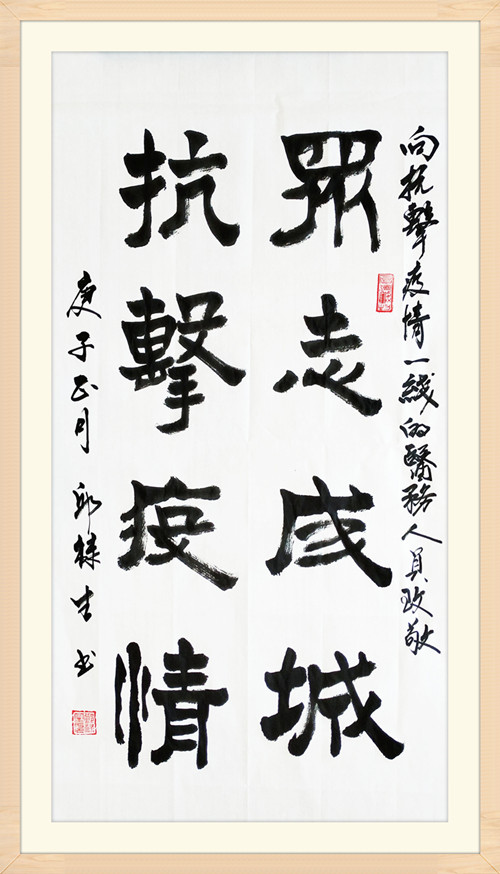 向抗擊疫情一綫的醫務人員致敬
眾志成城
抗擊疫情
庚子正月 邱祿生书